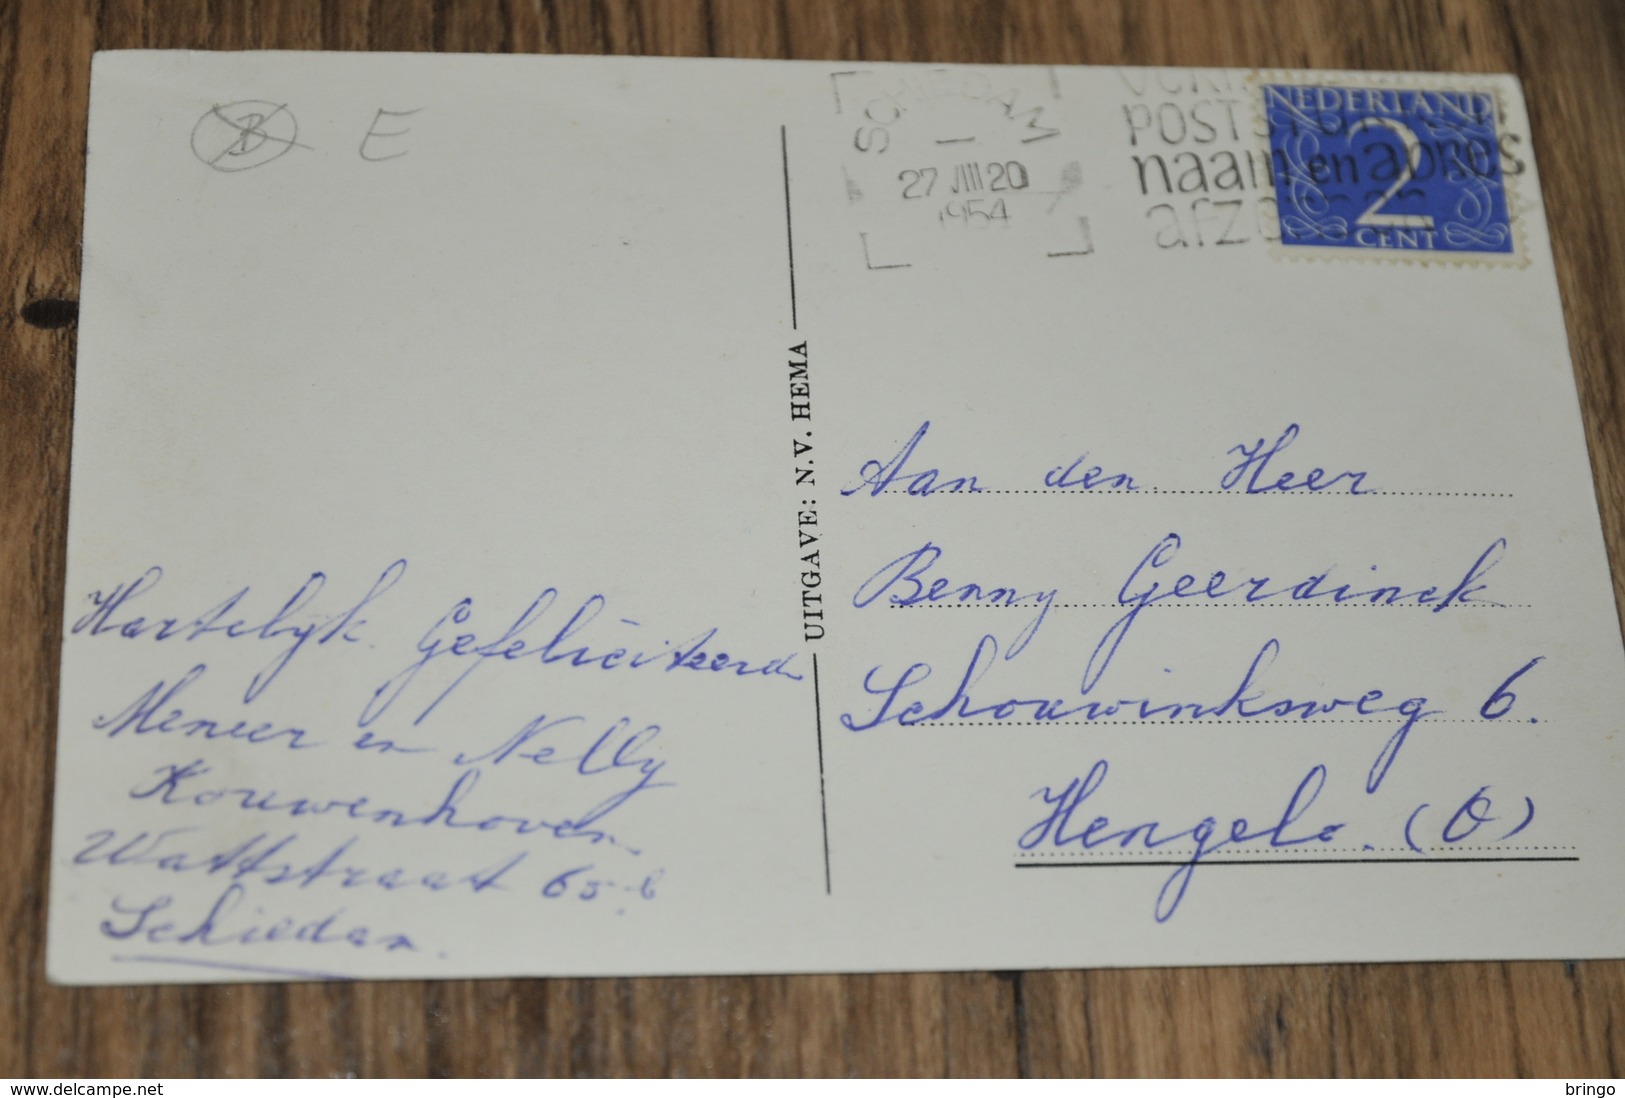 B E
SCHIEDAM
27 VIII 20
1954
POSTSTUKKEN
naam en adres
afzender
NEDERLAND
2
CENT
UITGAVE: N.V. HEMA
Aan den Heer
Benny Geerdinck
Schouwinksweg 6.
Hengelo. (O)
Hartelijk Gefeliciteerd
Meneer en Nelly
Kouwenhoven.
Wattstraat 65 b
Schiedam.
www.delcampe.net
bringo